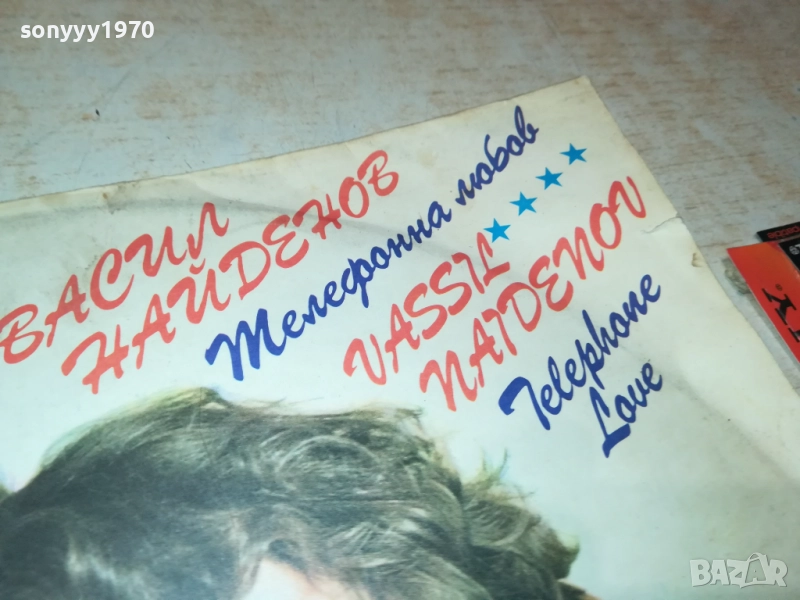 sonyyy1970
ВАСИЛ
НАЙДЕНОВ
Телефонна любов
VASSIL
NAIDENOV
Telephone
Love
BAZAR